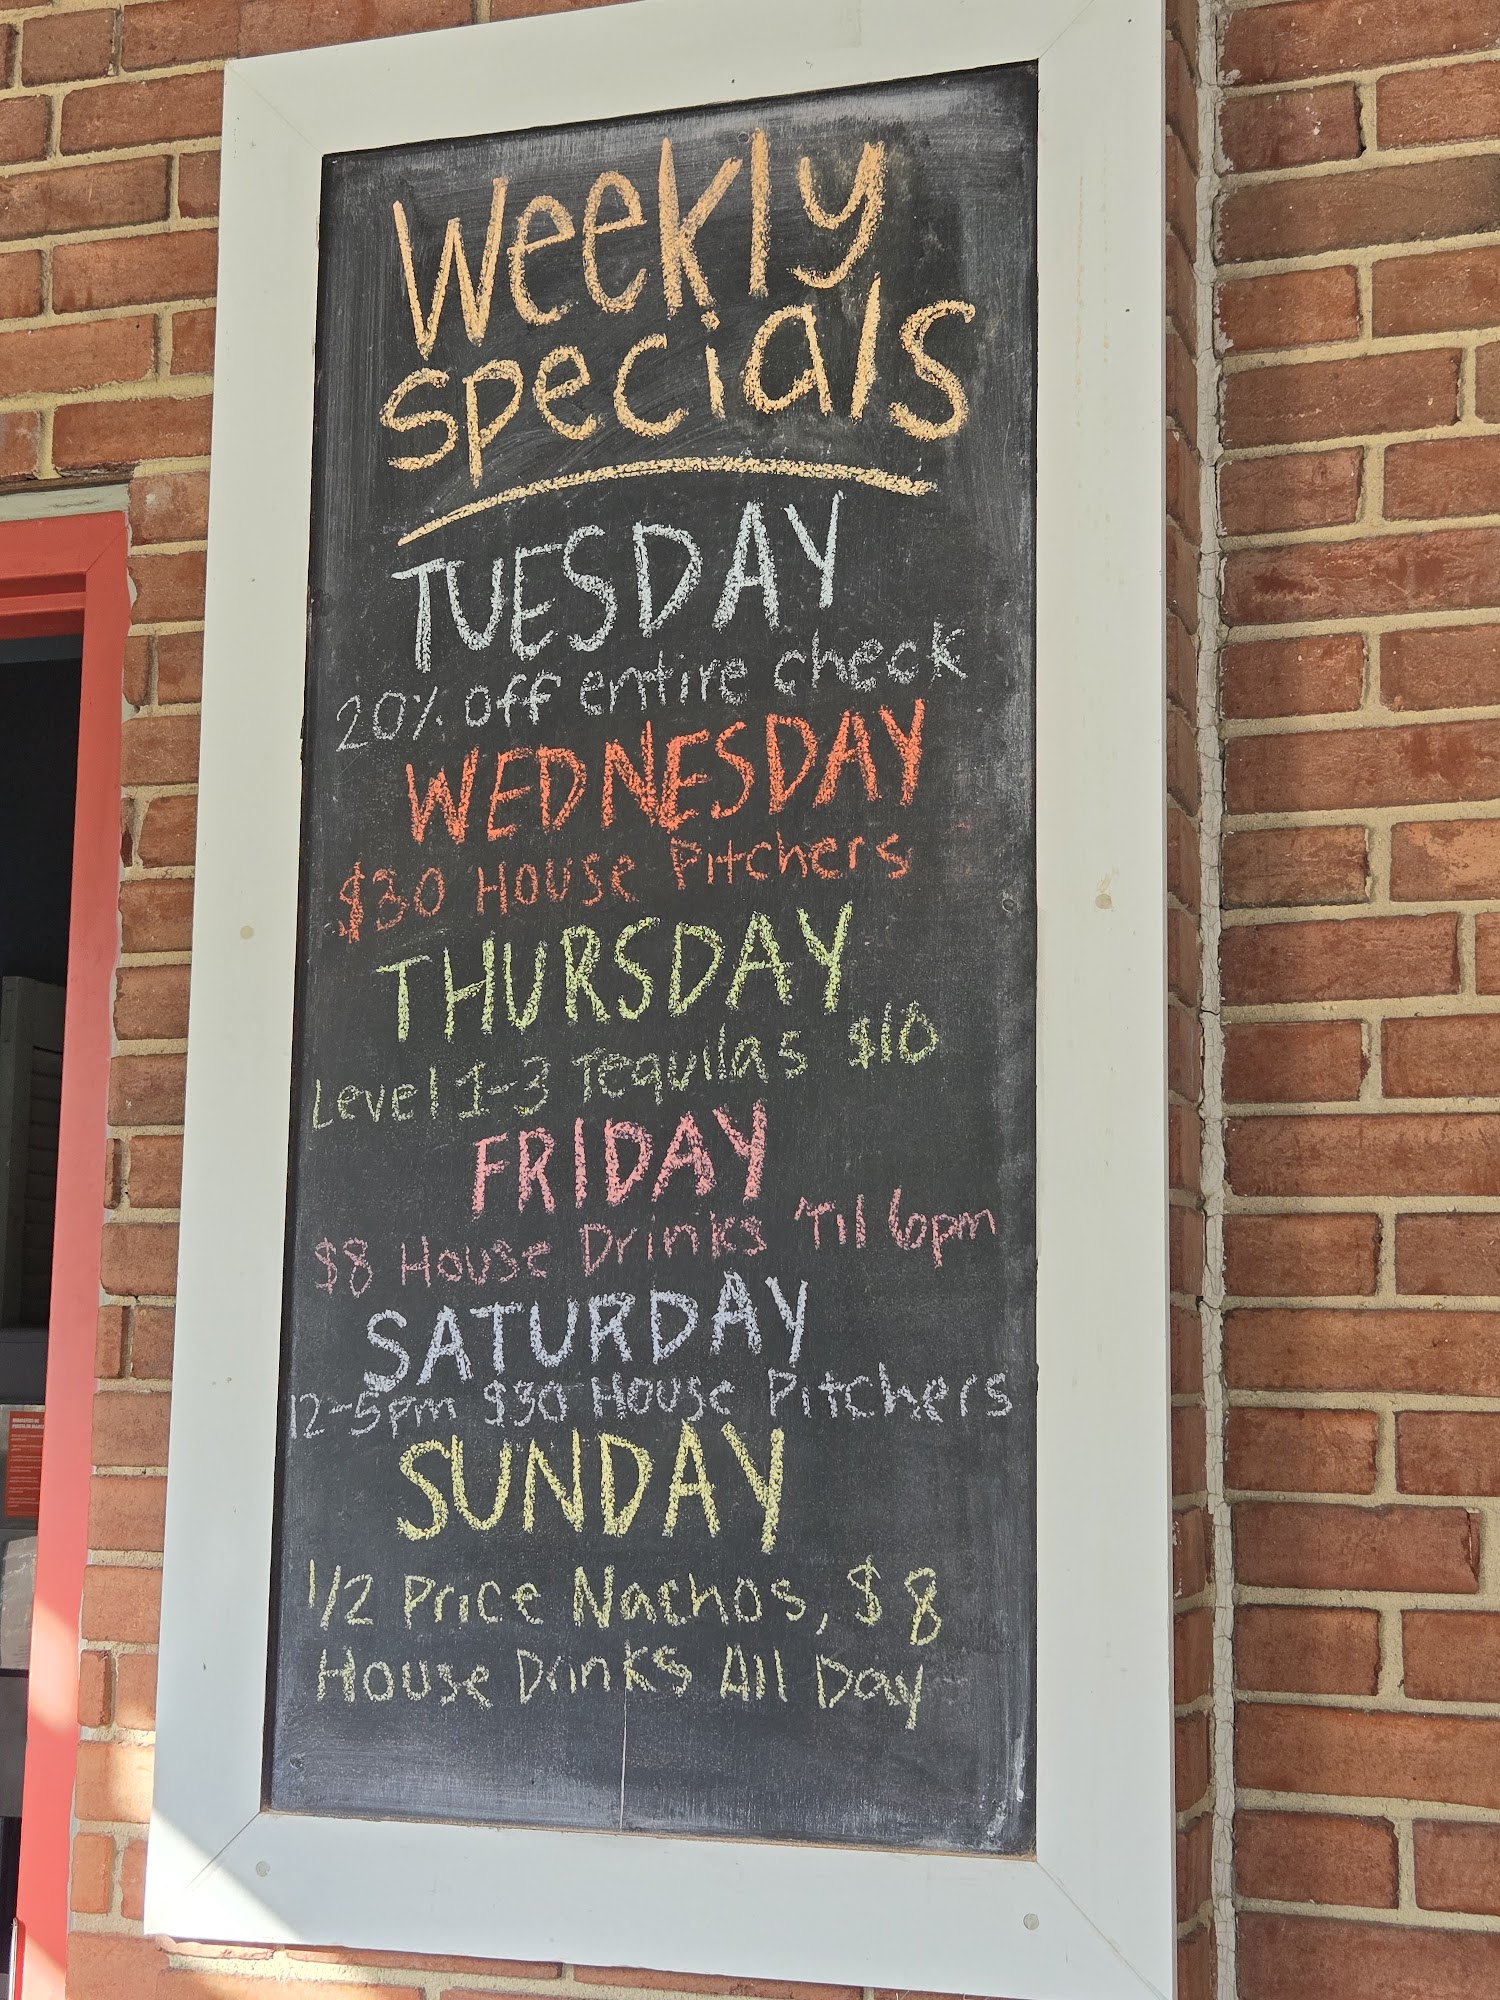 Weekly
specials
TUESDAY
20% off entire check
WEDNESDAY
$30 House Pitchers
THURSDAY
Level 1-3 Tequilas $10
FRIDAY
$8 House Drinks 'Til 6pm
SATURDAY
12-5pm $30 House Pitchers
SUNDAY
1/2 Price Nachos, $8
House Drinks All Day